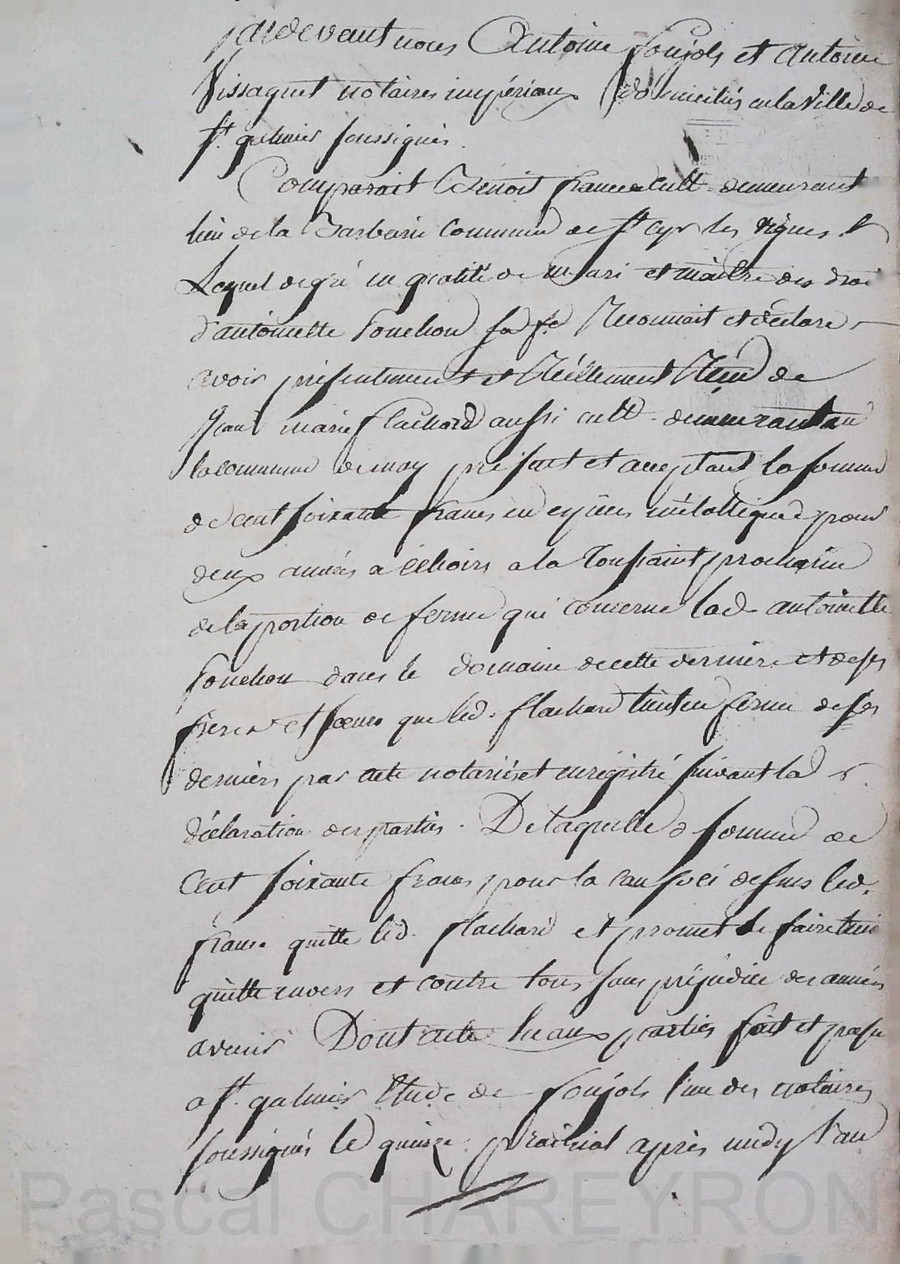 pardevant nous Antoine Poujols et antoine
Vissaguet notaires impériaux domiciliés en la Ville de
St. galmier soussignés.
Comparait Benoit france cult. demeurant
lieu de la Barbarie Commune de St cyr les vignes
Lequel de gré en qualité de mari et maitre des droi
d'antoinette Souchon sa fe Reconnait et déclare
avoir présentement et Réellement Reçu de
Jean marie flachard aussi cult. demeurant en
la commune de presant et acceptant la somme
de cent soixante francs en espèces métallique pour
deux années a échoirs a la Toussaint prochaine
de la portion de ferme qui concerne lad. antoinette
Souchon dans le domaine de cette dernière et de ses
freres et soeurs que led. flachard tient en ferme de ses
derniers par acte notariés et enregistré suivant la
déclaration des parties. De laquelle somme de
cent soixante francs pour la cause ci dessus led.
france quitte led. flachard et promet le faire tenir
quitte envers et contre tous sans préjudice des années
avenir Dont acte lu aux parties fait et passé
a St. galmier Etude de Poujols l'un des notaires
soussignés le quinze prairial après midy l'an
Pascal CHAREYRON